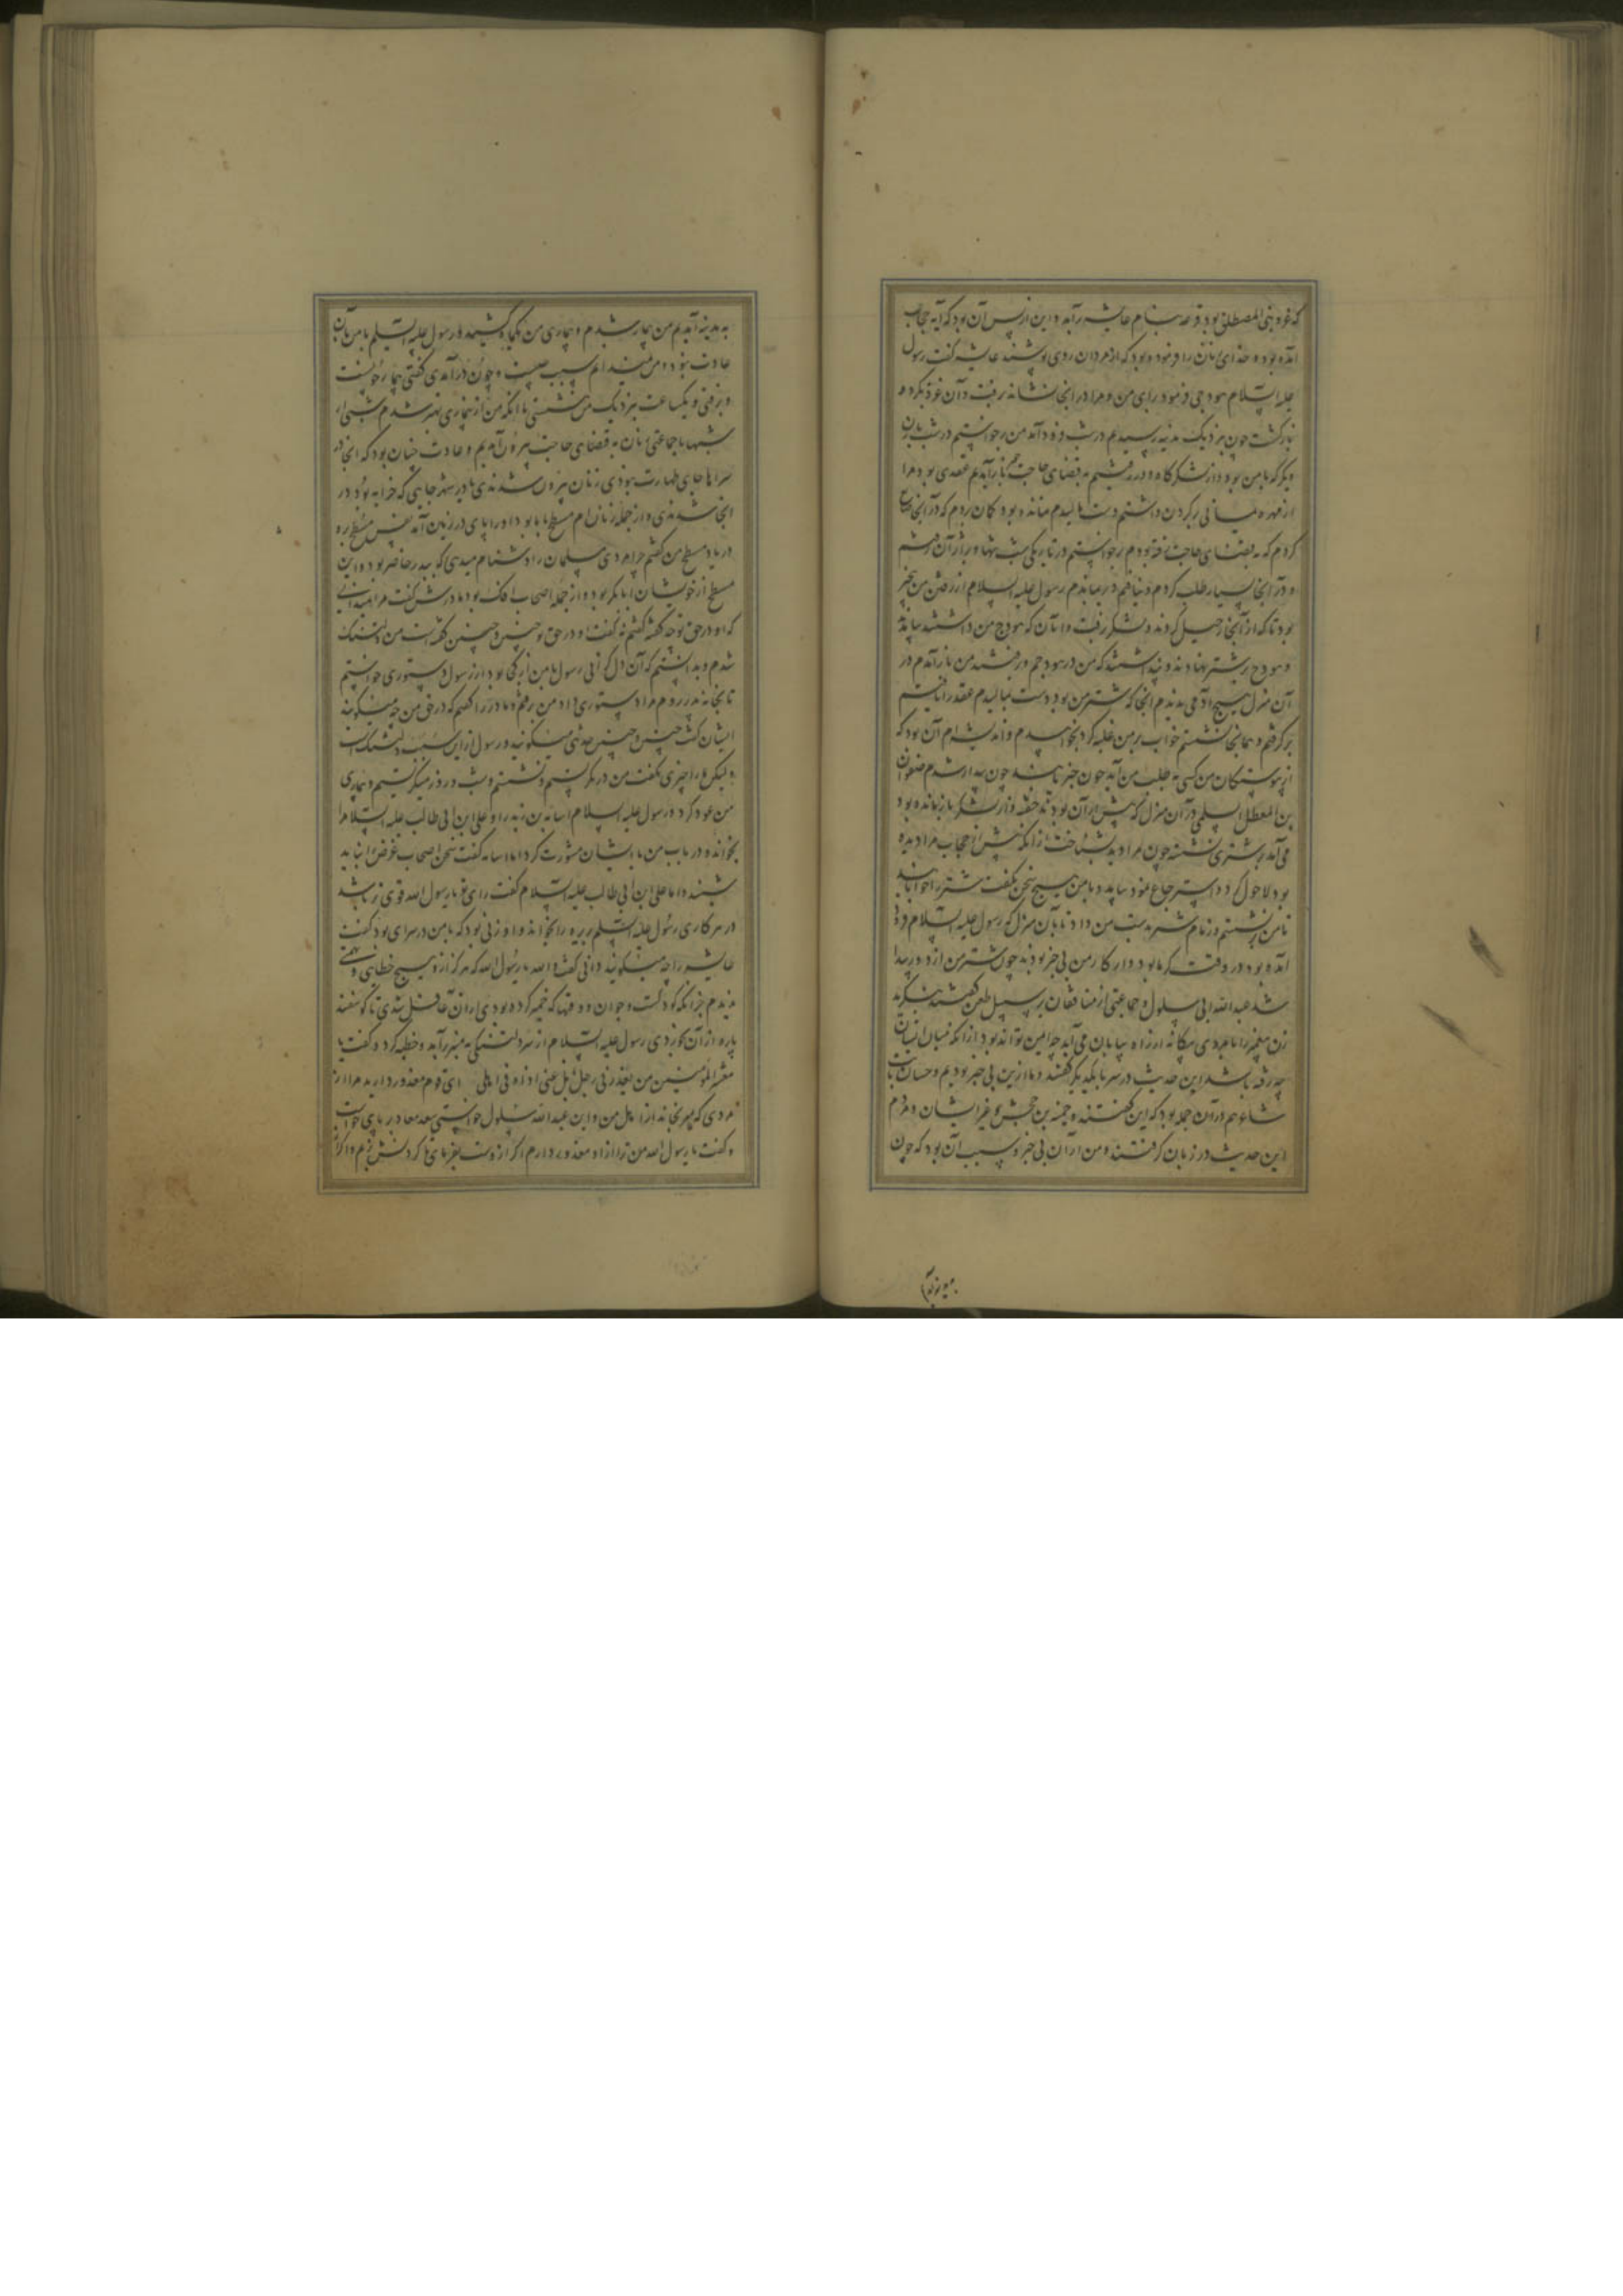 که غزوه بنی المصطلق بود قرعه بنام عایشه برآمد و این از پس آن بود که آیه حجاب
آمده بود و خدای زنان را فرموده بود که از مردان روی پوشند عایشه گفت رسول
علیه السلام هودجی فرمود برای من و مرا در آنجا نشاند برفت و آن غزو بکرد و
بازگشت چون بنزدیک مدینه رسیدیم در شب فرود آمد من برخواستم در شب با زن
دیگر که با من بود و از لشکرگاه دور رفتیم به قضای حاجت چون بازآمدیم عقدی بود مرا
از مهره یمانی بر گردن داشتم دست مالیدم نمانده بود گمان بردم که در آنجا ضایع
کردم که به قضای حاجت رفته بودم برخواستم در تاریکی شب تنها و بر اثر آن رفتم
و در آنجا بسیار طلب کردم و نیافتم دیر بماندم رسول علیه السلام از رفتن من بیخبر
بود تا که از آنجا رحیل کردند و لشکر برفت و آنان که هودج من داشتند بیامدند
و هودج بر شتر نهادند و پنداشتند که من در هودجم و برفتند من بازآمدم در
آن منزل هیچ آدمی ندیدم آنجا که شتر من بود دست بمالیدم عقد را یافتم
برگرفتم و همانجا نشستم خواب بر من غلبه کرد بخوابیدم و اندیشه‌ام آن بود که
از پیوستگان من کسی به طلب من آید چون خبر یابند چون بیدار شدم صفوان
بن المعطل السلمی در آن منزل که پیش از آن بودند خفته و از لشکر بازمانده بود
می‌آمد بر شتری نشسته چون مرا دید بشناخت زانکه پیش از حجاب مرا دیده
بود لاحول کرد و استرجاع نمود بیامد و با من هیچ سخن نگفت شتر را خوابانید
تا من برنشستم و زمام شتر بدست من داد تا بآن منزل که رسول علیه السلام فرود
آمده بود در وقت گرما بود و از کار من بی خبر بودند چون شتر من از دور پیدا
شد عبدالله ابی سلول و جماعتی از منافقان بر سبیل طعن گفتند بنگرید
زن پیغمبر را با مردی بیگانه از راه بیابان می‌آید چه ایمن تواند بود از آنکه میان ایشان
چه رفته باشد این حدیث در سر با یکدیگر گفتند و ما ازین بی خبر بودیم و حسان ثابت
شاعر هم در آن جمله بود که این گفتند و حمنه بنت جحش و غیر ایشان و مردم
این حدیث در زبان گرفتند و من از آن بی خبر و سبب آن بود که چون
به مدینه آمدیم من بیمار شدم و بیماری من یکماه کشید و رسول علیه السلام با من بآن
عادت نبود و من نمیدانم سبب چیست و چون درآمدی گفتی بیمار چونست
و برفتی و یکساعت بنزدیک من ننشستی تا آنکه من از بیماری بهتر شدم شبی از
شبها با جماعتی زنان به قضای حاجت بیرون آمدیم و عادت چنان بود که آنجا در
سراها جای طهارت نبودی زنان بیرون شدندی تا در شهر جایی که خرابه بود در
آنجا شدندی و از جمله زنان ام مسطح با ما بود او را پای در زمین آمد
در یاد مسطح من گفتم چرا مردی مسلمان را دشنام میدهی که ببدر حاضر بود و این
مسطح از خویشان ابابکر بود و از جمله اصحاب افک بود مادرش گفت مرا نمیدانی
که او در حق تو چه گفته گفتم نه گفت او در حق تو چنین و چنین گفته است من دلتنگ
شدم و بدانستم که آن دل گرانی رسول با من از کجا بود از رسول دستوری خواستم
تا بخانه پدر روم مرا دستوری داد من برفتم و مادر را گفتم که در حق من چه میگویند
ایشان گفت چنین و چنین حدیثی میگویند و رسول از این سبب دلتنگ است
ولیکن ما را چیزی نگفت من در گریستم و نشستم و شب و روز میگریستم و بیماری
من عود کرد و رسول علیه السلام اسامه بن زید را و علی ابن ابی طالب علیه السلام را
بخواند و در باب من با ایشان مشورت کرد اما اسامه گفت سخن اصحاب غرض نباید
شنید و اما علی ابن ابی طالب علیه السلام گفت رای تو یا رسول الله قوی‌تر باشد
در هر کاری رسول علیه السلام بریره را بخواند و او زنی بود که با من در سرای بود گفت
عایشه را چه میگویند دانی گفت والله یا رسول الله که هرگز از او هیچ خطایی و تهمتی
ندیدم جز آنکه کودکست و جوان و وقتها که خمیر کرده بودی از آن غافل شدی تا گوسفند
پاره از آن بخوردی رسول علیه السلام از سر دلتنگی به منبر برآمد و خطبه کرد و گفت یا
معشر المؤمنین من یعذرنی رجل ابل عنی اذاه فی اهلی ای قوم معذور دارید مرا از
مردی که میرنجاند از اهل من و این عبدالله سلول خواستی سعد معاذ بر پای خواست
و گفت یا رسول الله من ترا از او معذور دارم اگر از اوس است بفرمای تا گردنش بزنم و اگر از
به مدینه آمدیم